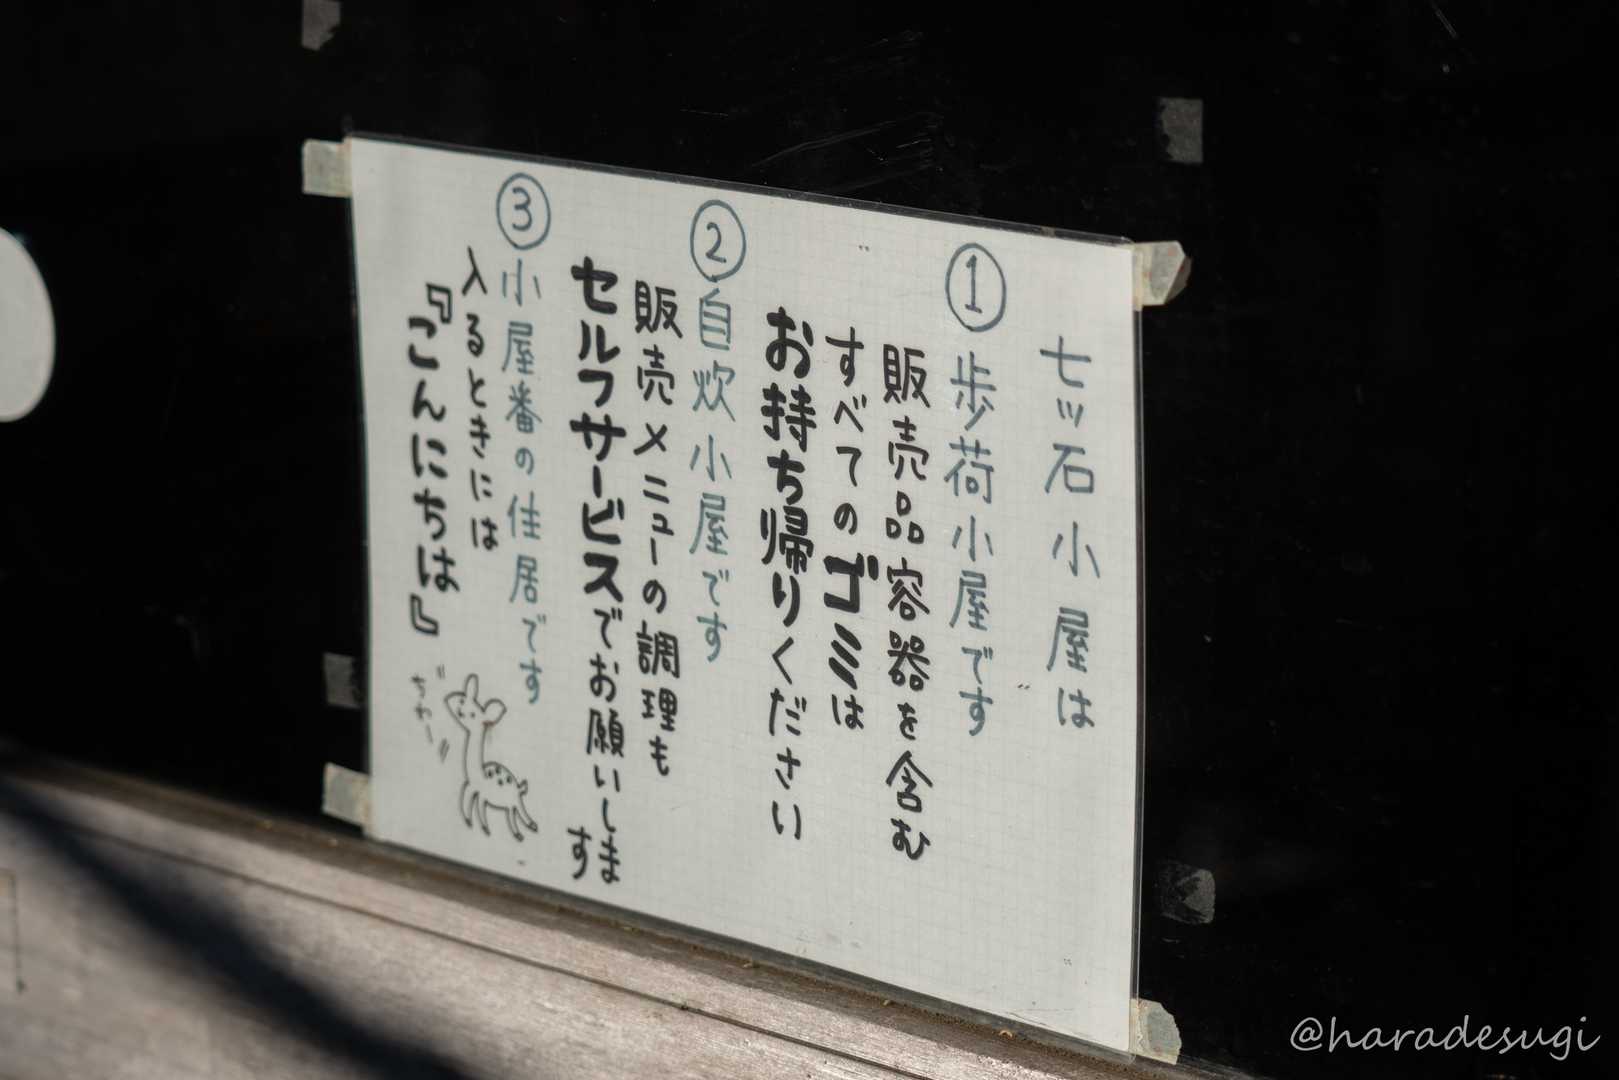 七ッ石小屋は
①歩荷小屋です
販売品容器を含む
すべてのゴミは
お持ち帰りください
②自炊小屋です
販売メニューの調理も
セルフサービスでお願いします
③小屋番の住居です
入るときには
『こんにちは』
@haradesugi